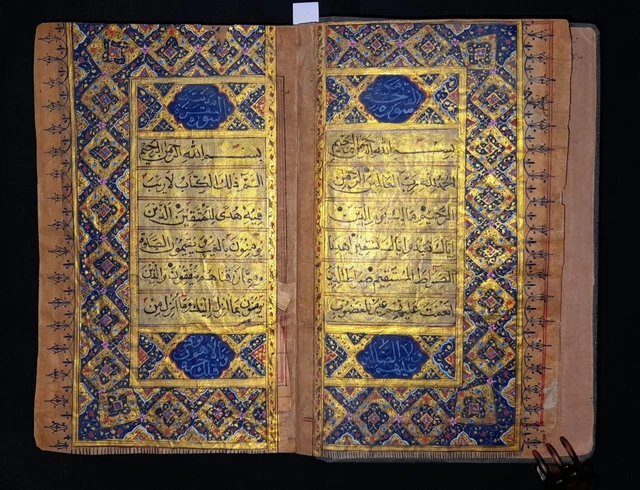 سورة
بسم الله الرحمن الرحيم
الحمد لله رب العالمين الرحمن
الرحيم مالك يوم الدين
اياك نعبد واياك نستعين اهدنا
الصراط المستقيم صراط الذين
انعمت عليهم غير المغضوب
عليهم ولا الضالين
سورة
بسم الله الرحمن الرحيم
الم ذلك الكتاب لا ريب
فيه هدى للمتقين الذين
يؤمنون بالغيب ويقيمون الصلوة
ومما رزقناهم ينفقون والذين
يؤمنون بما انزل اليك وما انزل من